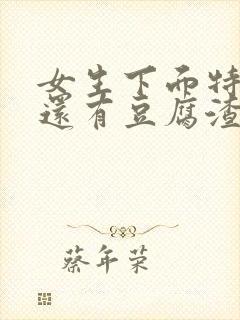 女生下面特
還有豆腐渣
蔡年荣